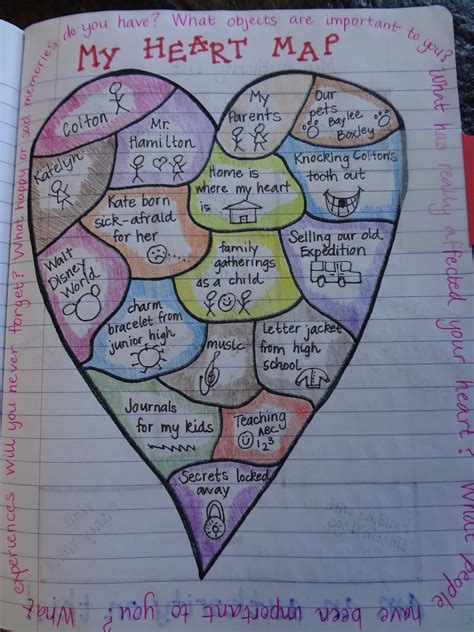 do you have? What objects are important to you?
What has really affected your heart?
What people
have been important to you? What
experiences will you never forget? What happy or sad memories
MY HEART MAP
Colton
Mr.
Hamilton
My
Parents
Our
pets
Baylee
Boxley
Katelyn
Home is
where my heart
is
Knocking Colton's
tooth out
Kate born
sick-afraid
for her
Walt
Disney
World
family
gatherings
as a child
Selling our old
Expedition
charm
bracelet from
junior high
music
Letter jacket
from high
school
Journals
for my kids
Teaching
ABC
123
Secrets locked
away